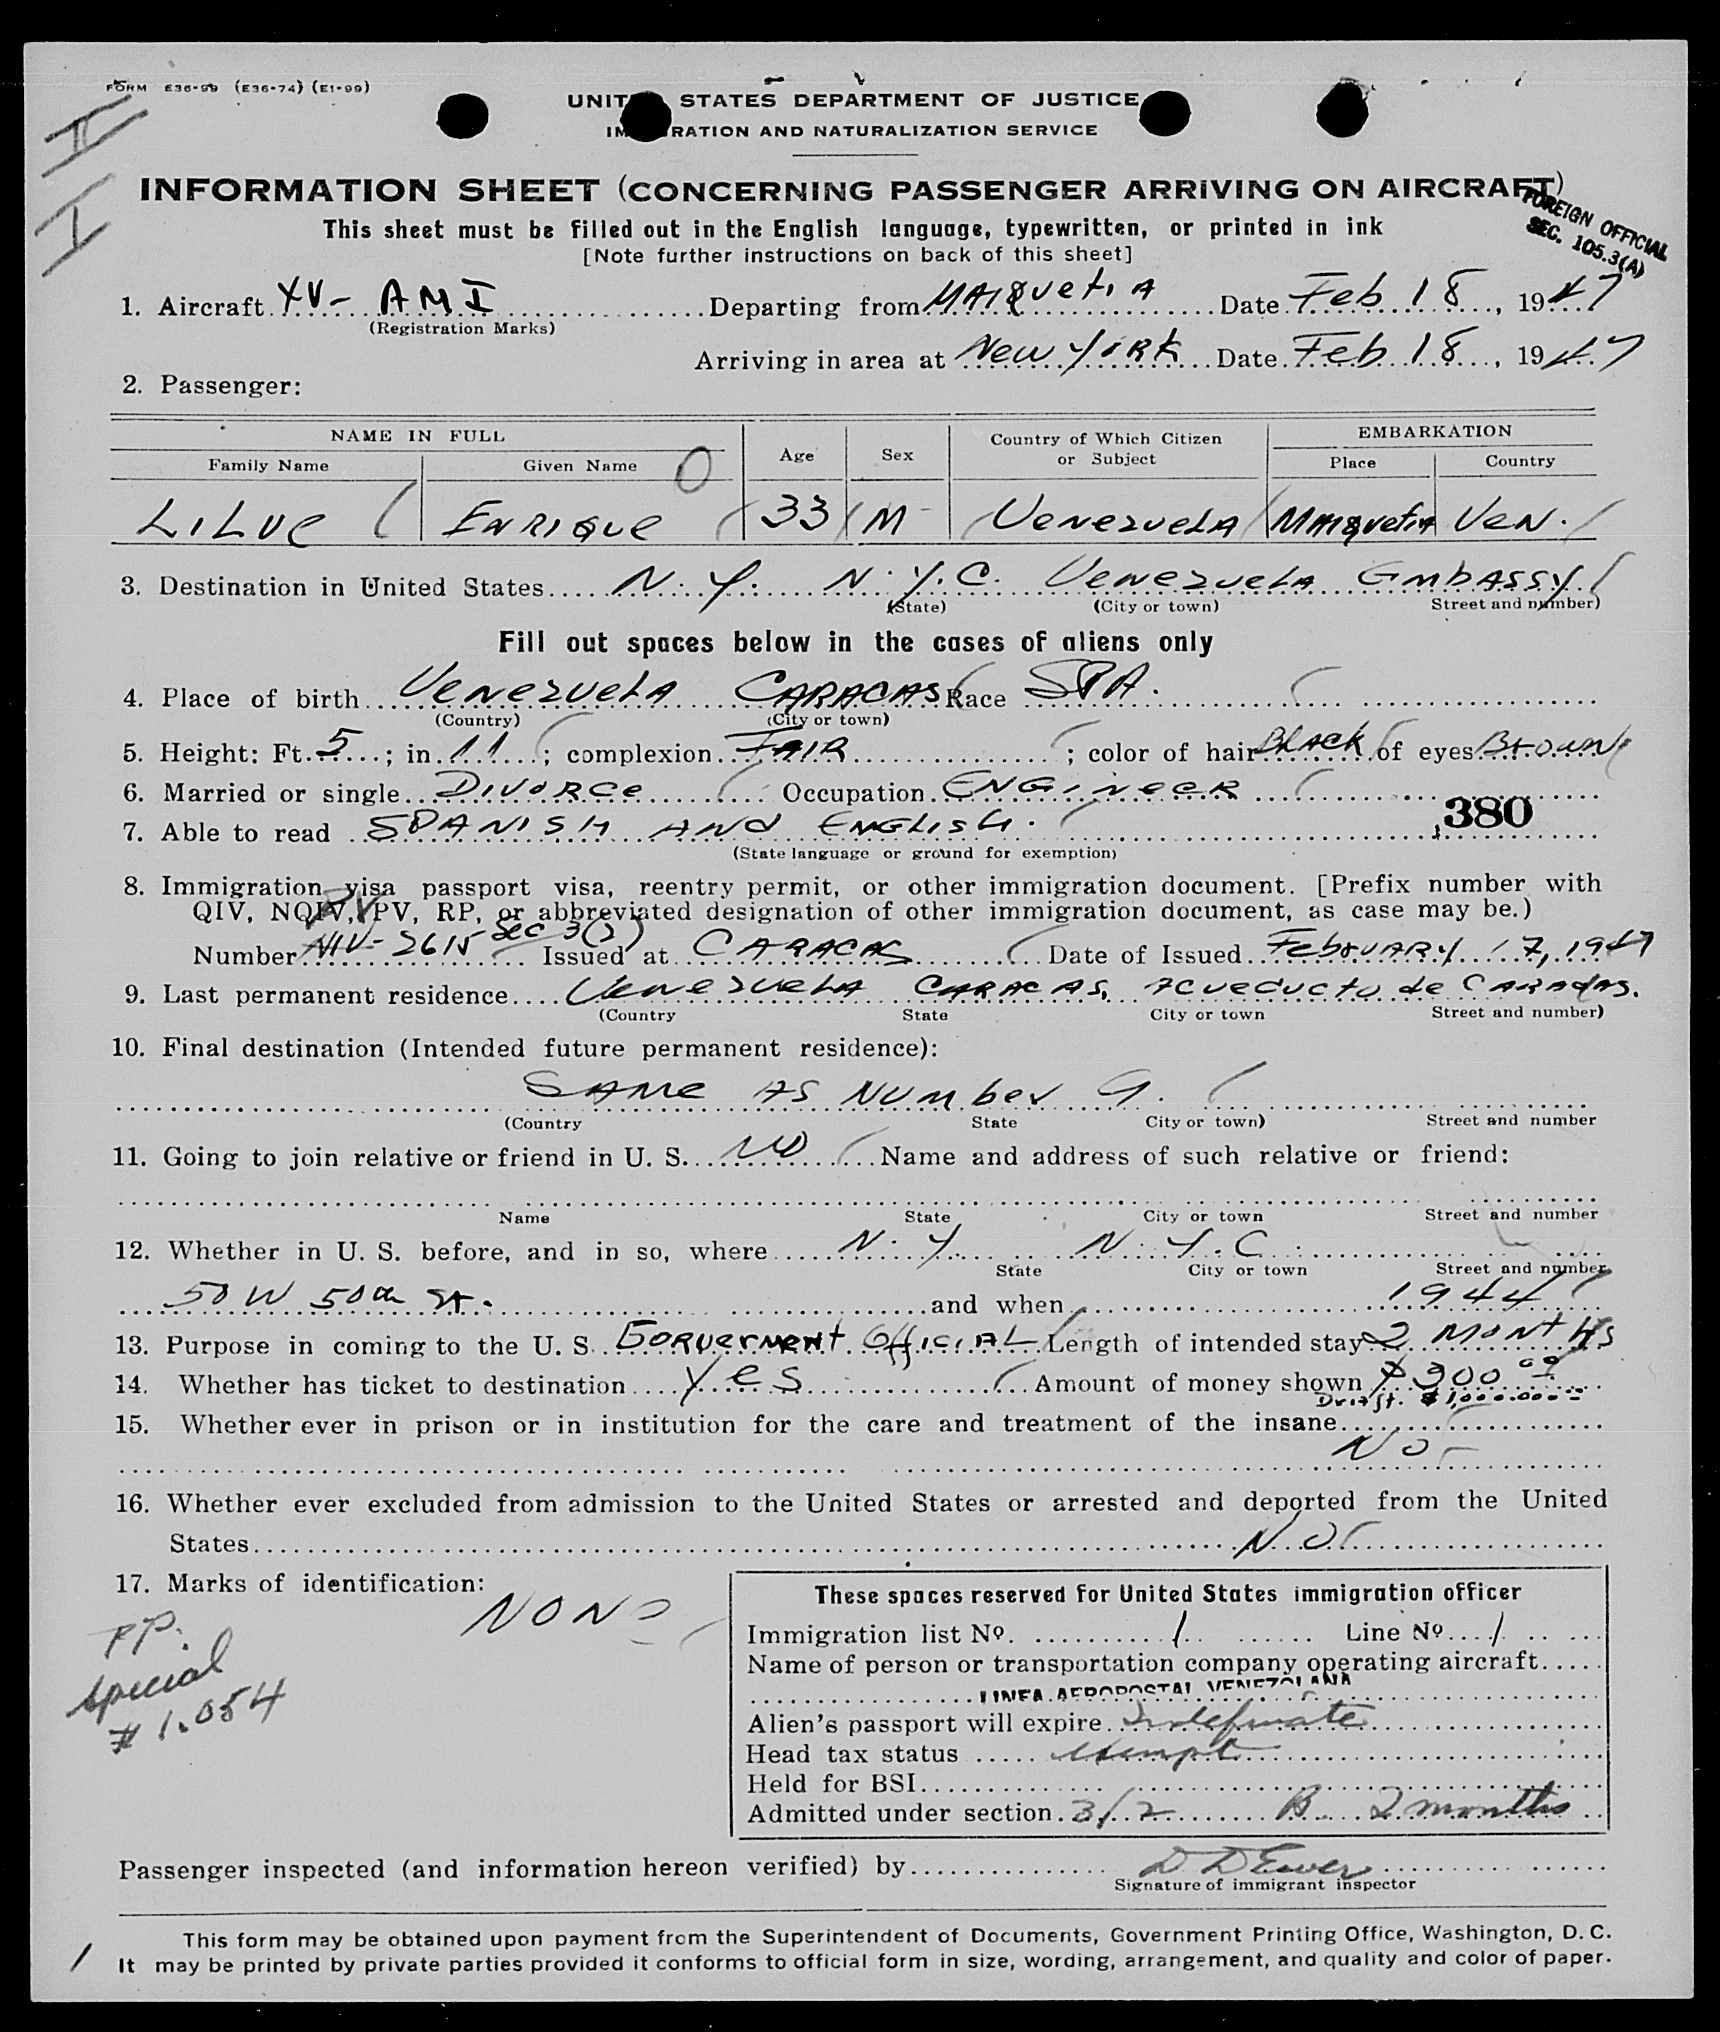 FORM E36-99 (E36-74) (E1-99)
UNIT STATES DEPARTMENT OF JUSTICE
IM RATION AND NATURALIZATION SERVICE
INFORMATION SHEET (CONCERNING PASSENGER ARRIVING ON AIRCRAFT)
FOREIGN OFFICIAL
SEC. 105.3(A)
This sheet must be filled out in the English language, typewritten, or printed in ink
[Note further instructions on back of this sheet]
1. Aircraft YV- AMI Departing from MAIQUETIA Date Feb 18, 1947
(Registration Marks)
Arriving in area at New YORK Date Feb 18, 1947
2. Passenger:
NAME IN FULL Age Sex Country of Which Citizen or Subject EMBARKATION
Family Name Given Name O Place Country
LILUE ENRIQUE 33 M VENEZUELA MAIQUETIA VEN.
3. Destination in United States N.Y. N.Y.C. VENEZUELA EMBASSY
(State) (City or town) Street and number)
Fill out spaces below in the cases of aliens only
4. Place of birth VENEZUELA CARACAS Race SPA.
(Country) (City or town)
5. Height: Ft. 5; in. 11; complexion FAIR; color of hair BLACK of eyes BROWN
6. Married or single DIVORCE Occupation ENGINEER
380
7. Able to read SPANISH AND ENGLISH.
(State language or ground for exemption)
8. Immigration visa passport visa, reentry permit, or other immigration document. [Prefix number with
QIV, NQIV, PV, RP, or abbreviated designation of other immigration document, as case may be.)
PV
Number NIV-2615 Sec 3(2) Issued at CARACAS Date of Issued FEBRUARY 17, 1947
9. Last permanent residence VENEZUELA CARACAS, Acueducto de CARACAS.
(Country State City or town Street and number)
10. Final destination (Intended future permanent residence):
SAME AS NUMBER 9.
(Country State City or town) Street and number
11. Going to join relative or friend in U. S. NO Name and address of such relative or friend:
Name State City or town Street and number
12. Whether in U. S. before, and in so, where N.Y. N.Y.C.
State City or town Street and number
50 W 50th St. and when 1944
13. Purpose in coming to the U. S. GORVERMENT OFFICIAL Length of intended stay 2 MONTHS
14. Whether has ticket to destination YES Amount of money shown $300 00
Draft. $1,000.000
15. Whether ever in prison or in institution for the care and treatment of the insane
NO
16. Whether ever excluded from admission to the United States or arrested and deported from the United
States NO
17. Marks of identification:
NONE
PP.
special
# 1.054
These spaces reserved for United States immigration officer
Immigration list No. 1 Line No. 1
Name of person or transportation company operating aircraft
LINEA AEROPOSTAL VENEZOLANA
Alien's passport will expire Indefinate
Head tax status exempt
Held for BSI
Admitted under section 3/2 B 2 months
Passenger inspected (and information hereon verified) by D D Ewer
Signature of immigrant inspector
This form may be obtained upon payment from the Superintendent of Documents, Government Printing Office, Washington, D. C.
It may be printed by private parties provided it conforms to official form in size, wording, arrangement, and quality and color of paper.